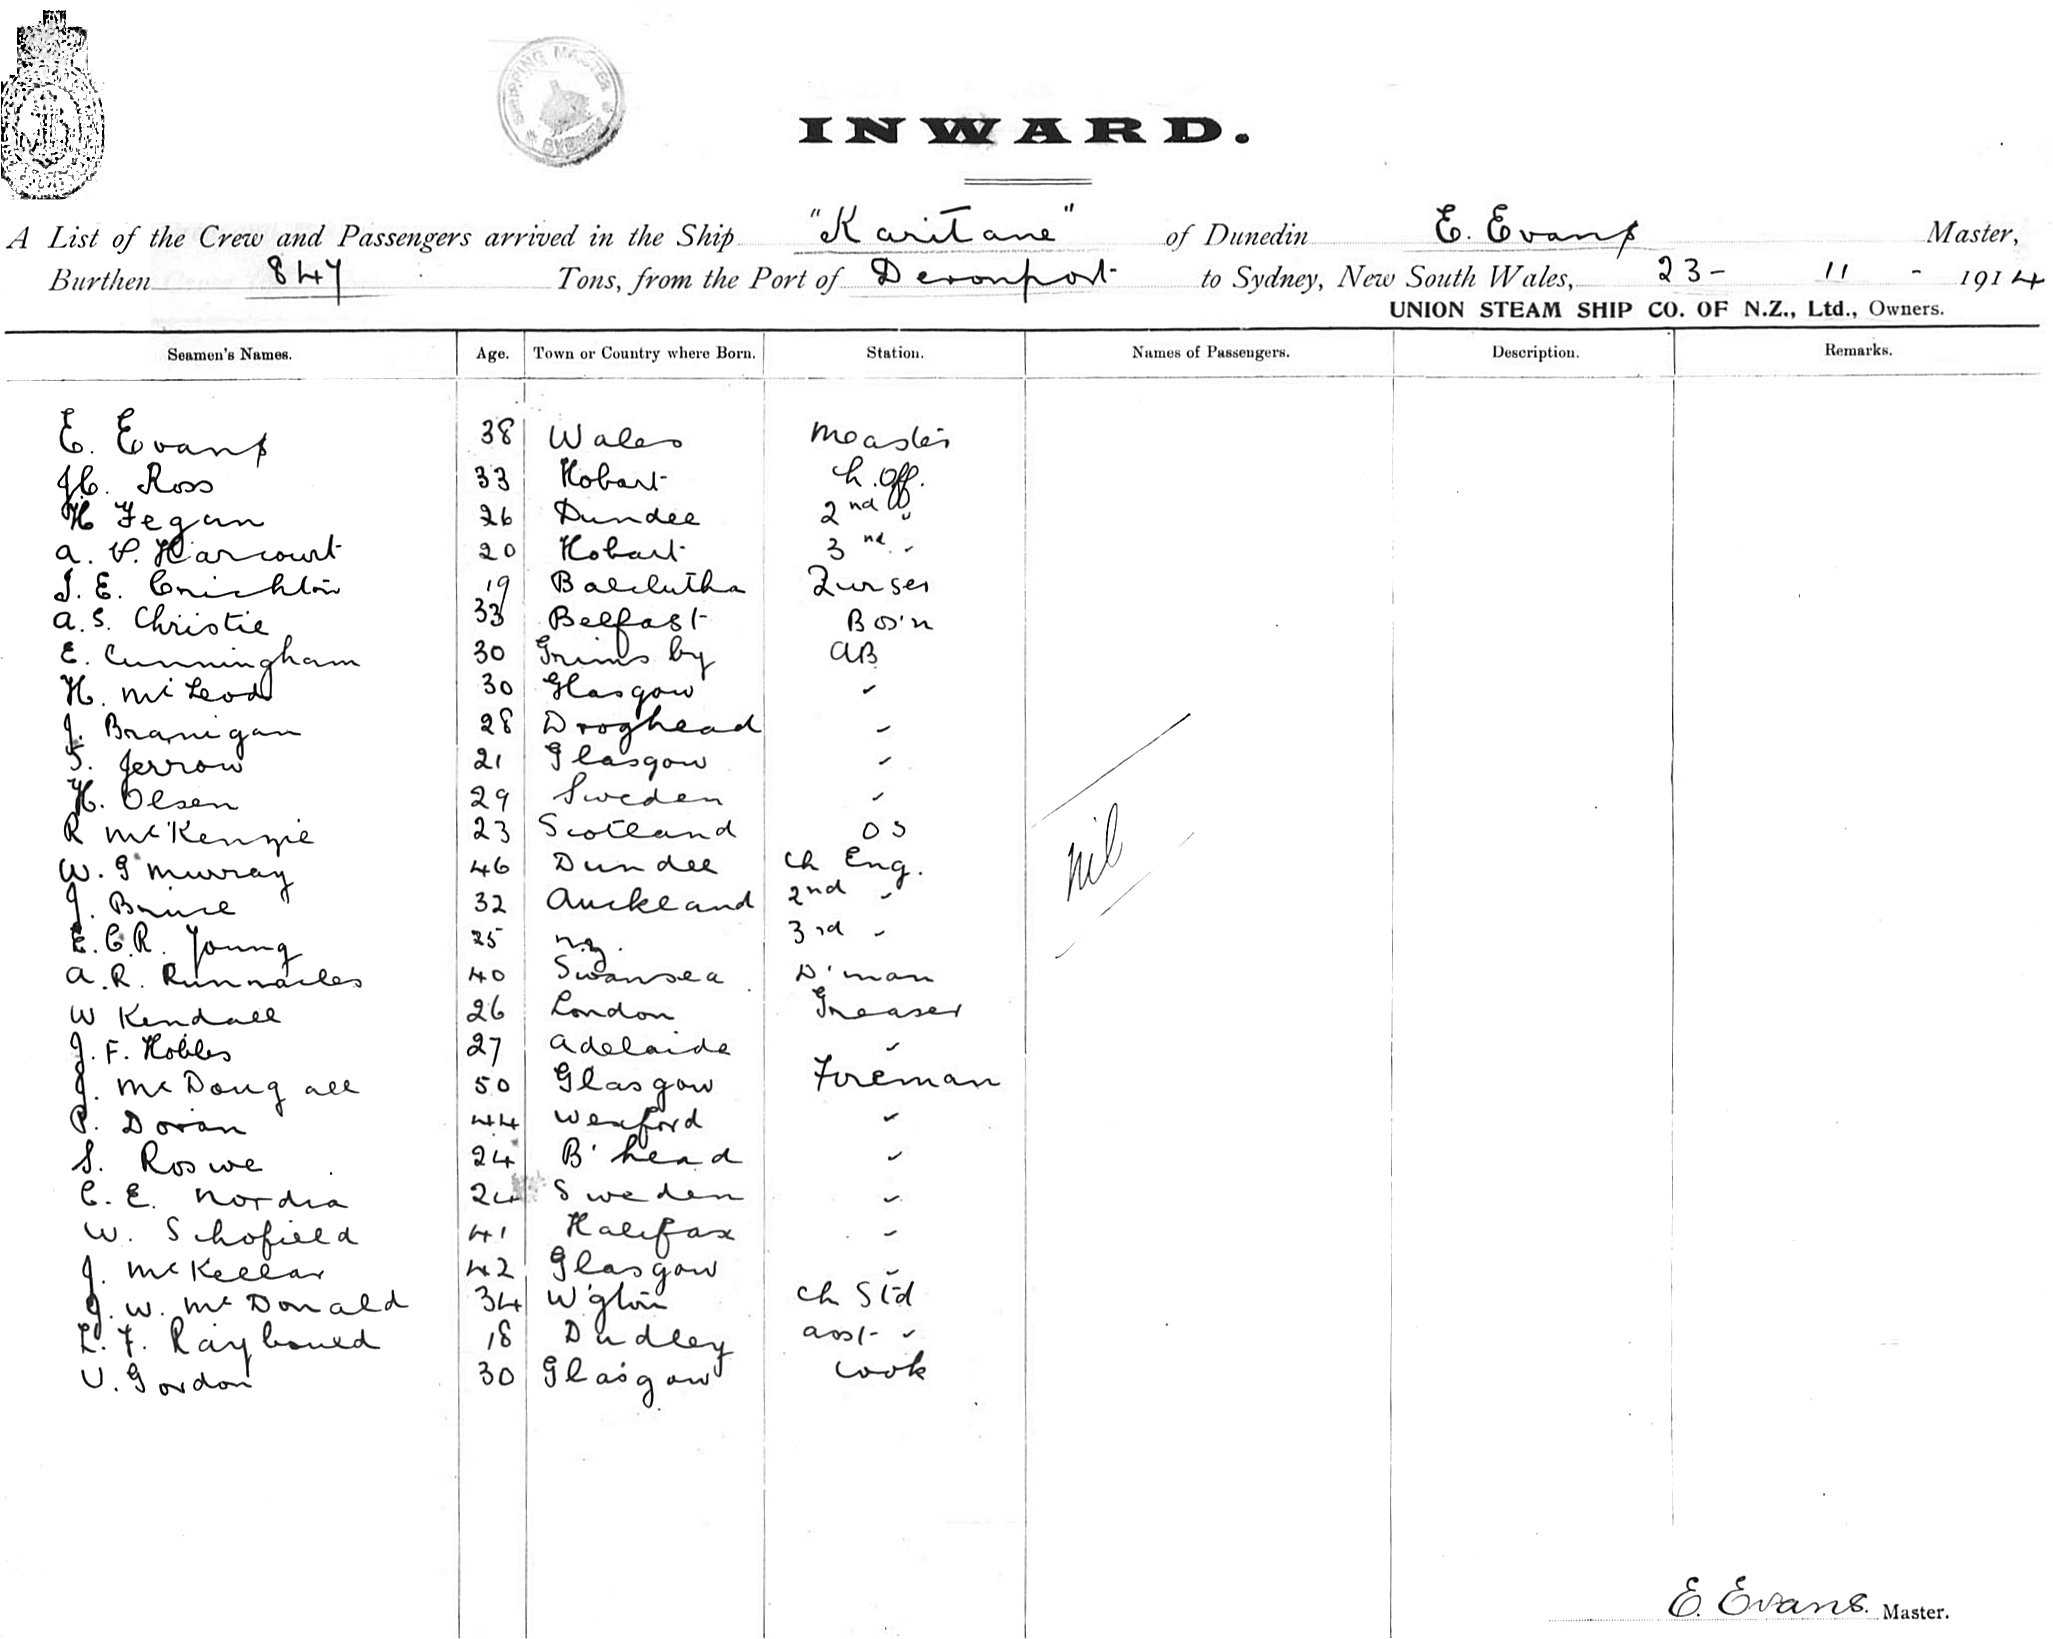 SHIPPING MASTER SYDNEY
INWARD.
A List of the Crew and Passengers arrived in the Ship "Karitane" of Dunedin E. Evans Master,
Burthen 847 Tons, from the Port of Devonport to Sydney, New South Wales, 23 - 11 - 1914
UNION STEAM SHIP CO. OF N.Z., Ltd., Owners.
Seamen's Names. Age. Town or Country where Born. Station. Names of Passengers. Description. Remarks.
E. Evans 38 Wales Master
Ross 33 Hobart Ch. Off.
H Fegan 26 Dundee 2nd "
A. V. Harcourt 20 Hobart 3rd "
J. E. Crichton 19 Balclutha Purser
A. S. Christie 33 Belfast Bos'n
E. Cunningham 30 Grimsby AB
H. McLeod 30 Glasgow "
J. Branigan 28 Droghead "
T. Jerrow 21 Glasgow "
H. Olsen 29 Sweden "
R McKenzie 23 Scotland OS
W. G Murray 46 Dundee Ch Eng.
J. Bruce 32 Auckland 2nd "
E. C. R. Young 25 N.Z. 3rd "
nil
A. R. Runnacles 40 Swansea D'man
W Kendall 26 London Greaser
J. F. Hobbs 27 Adelaide "
J. McDougall 50 Glasgow Fireman
P. Doran 44 Wexford "
S. Roswe 24 B'head "
C. E. Nordia 24 Sweden "
W. Schofield 41 Halifax "
J. McKellar 42 Glasgow "
J. W. McDonald 34 W'gton Ch Std
L. F. Raybould 18 Dudley asst "
V. Gordon 30 Glasgow Cook
E. Evans. Master.